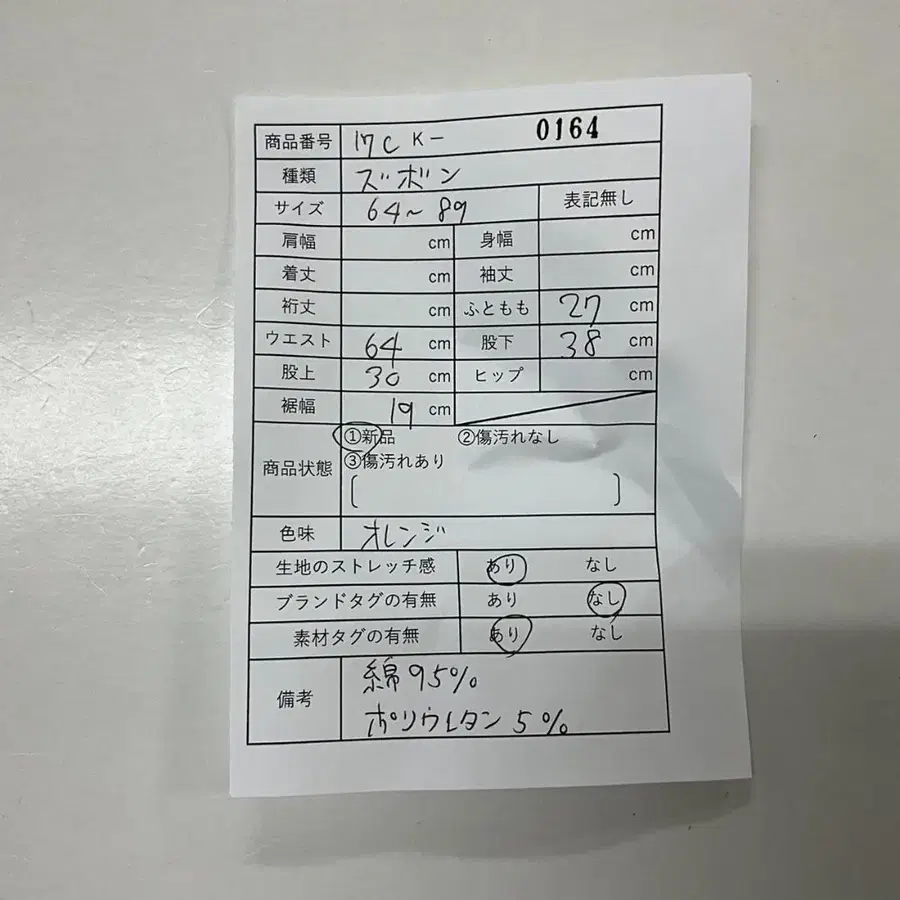 商品番号 17C K- 0164
種類 ズボン
サイズ 64~89 表記無し
肩幅 cm 身幅 cm
着丈 cm 袖丈 cm
裄丈 cm ふともも 27 cm
ウエスト 64 cm 股下 38 cm
股上 30 cm ヒップ cm
裾幅 19 cm
商品状態 ①新品 ②傷汚れなし
③傷汚れあり
色味 オレンジ
生地のストレッチ感 あり なし
ブランドタグの有無 あり なし
素材タグの有無 あり なし
備考 綿95%
ポリウレタン5%